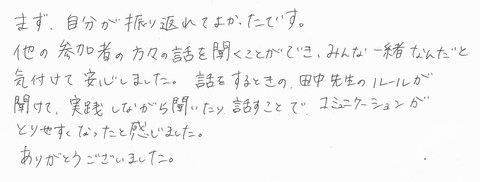 まず、自分が振り返れてよかったです。
他の参加者の方々の話を聞くことができ、みんな一緒なんだと
気付けて安心しました。話をするときの、田中先生のルールが
聞けて、実践しながら聞いたり、話すことで、コミュニケーションが
とりやすくなったと感じました。
ありがとうございました。